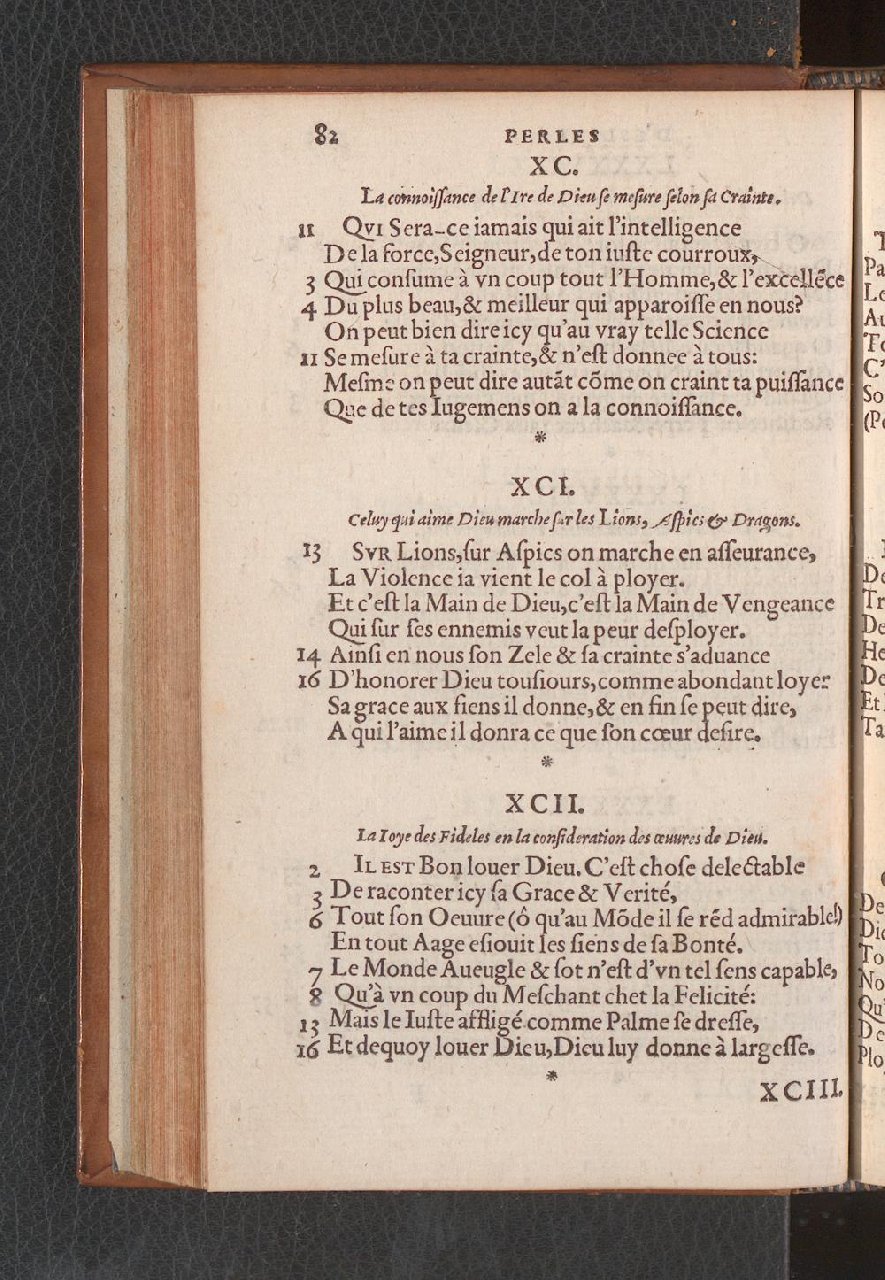 82 PERLES
XC.
La connoiſſance de l'Ire de Dieu ſe meſure ſelon ſa Crainte.
11 QVI Sera-ce iamais qui ait l'intelligence
De la force, Seigneur, de ton iuſte courroux,
3 Qui conſume à vn coup tout l'Homme, & l'excellẽce
4 Du plus beau, & meilleur qui apparoiſſe en nous?
On peut bien dire icy qu'au vray telle Science
11 Se meſure à ta crainte, & n'eſt donnee à tous:
Meſme on peut dire autãt cõme on craint ta puiſſance
Que de tes Iugemens on a la connoiſſance.
*
XCI.
Celuy qui aime Dieu marche ſur les Lions, Aſpics & Dragons.
13 SVR Lions, ſur Aſpics on marche en aſſeurance,
La Violence ia vient le col à ployer.
Et c'eſt la Main de Dieu, c'eſt la Main de Vengeance
Qui ſur ſes ennemis veut la peur deſployer.
14 Ainſi en nous ſon Zele & ſa crainte s'aduance
16 D'honorer Dieu touſiours, comme abondant loyer
Sa grace aux ſiens il donne, & en fin ſe peut dire,
A qui l'aime il donra ce que ſon cœur deſire.
*
XCII.
La Ioye des Fideles en la conſideration des œuures de Dieu.
2 IL EST Bon louer Dieu. C'eſt choſe delectable
3 De raconter icy ſa Grace & Verité,
6 Tout ſon Oeuure (ô qu'au Mõde il ſe rẽd admirable!)
En tout Aage eſiouit les ſiens de ſa Bonté.
7 Le Monde Aueugle & ſot n'eſt d'vn tel ſens capable,
8 Qu'à vn coup du Meſchant chet la Felicité:
13 Mais le Iuſte affligé comme Palme ſe dreſſe,
16 Et dequoy louer Dieu, Dieu luy donne à largeſſe.
*
XCIII.